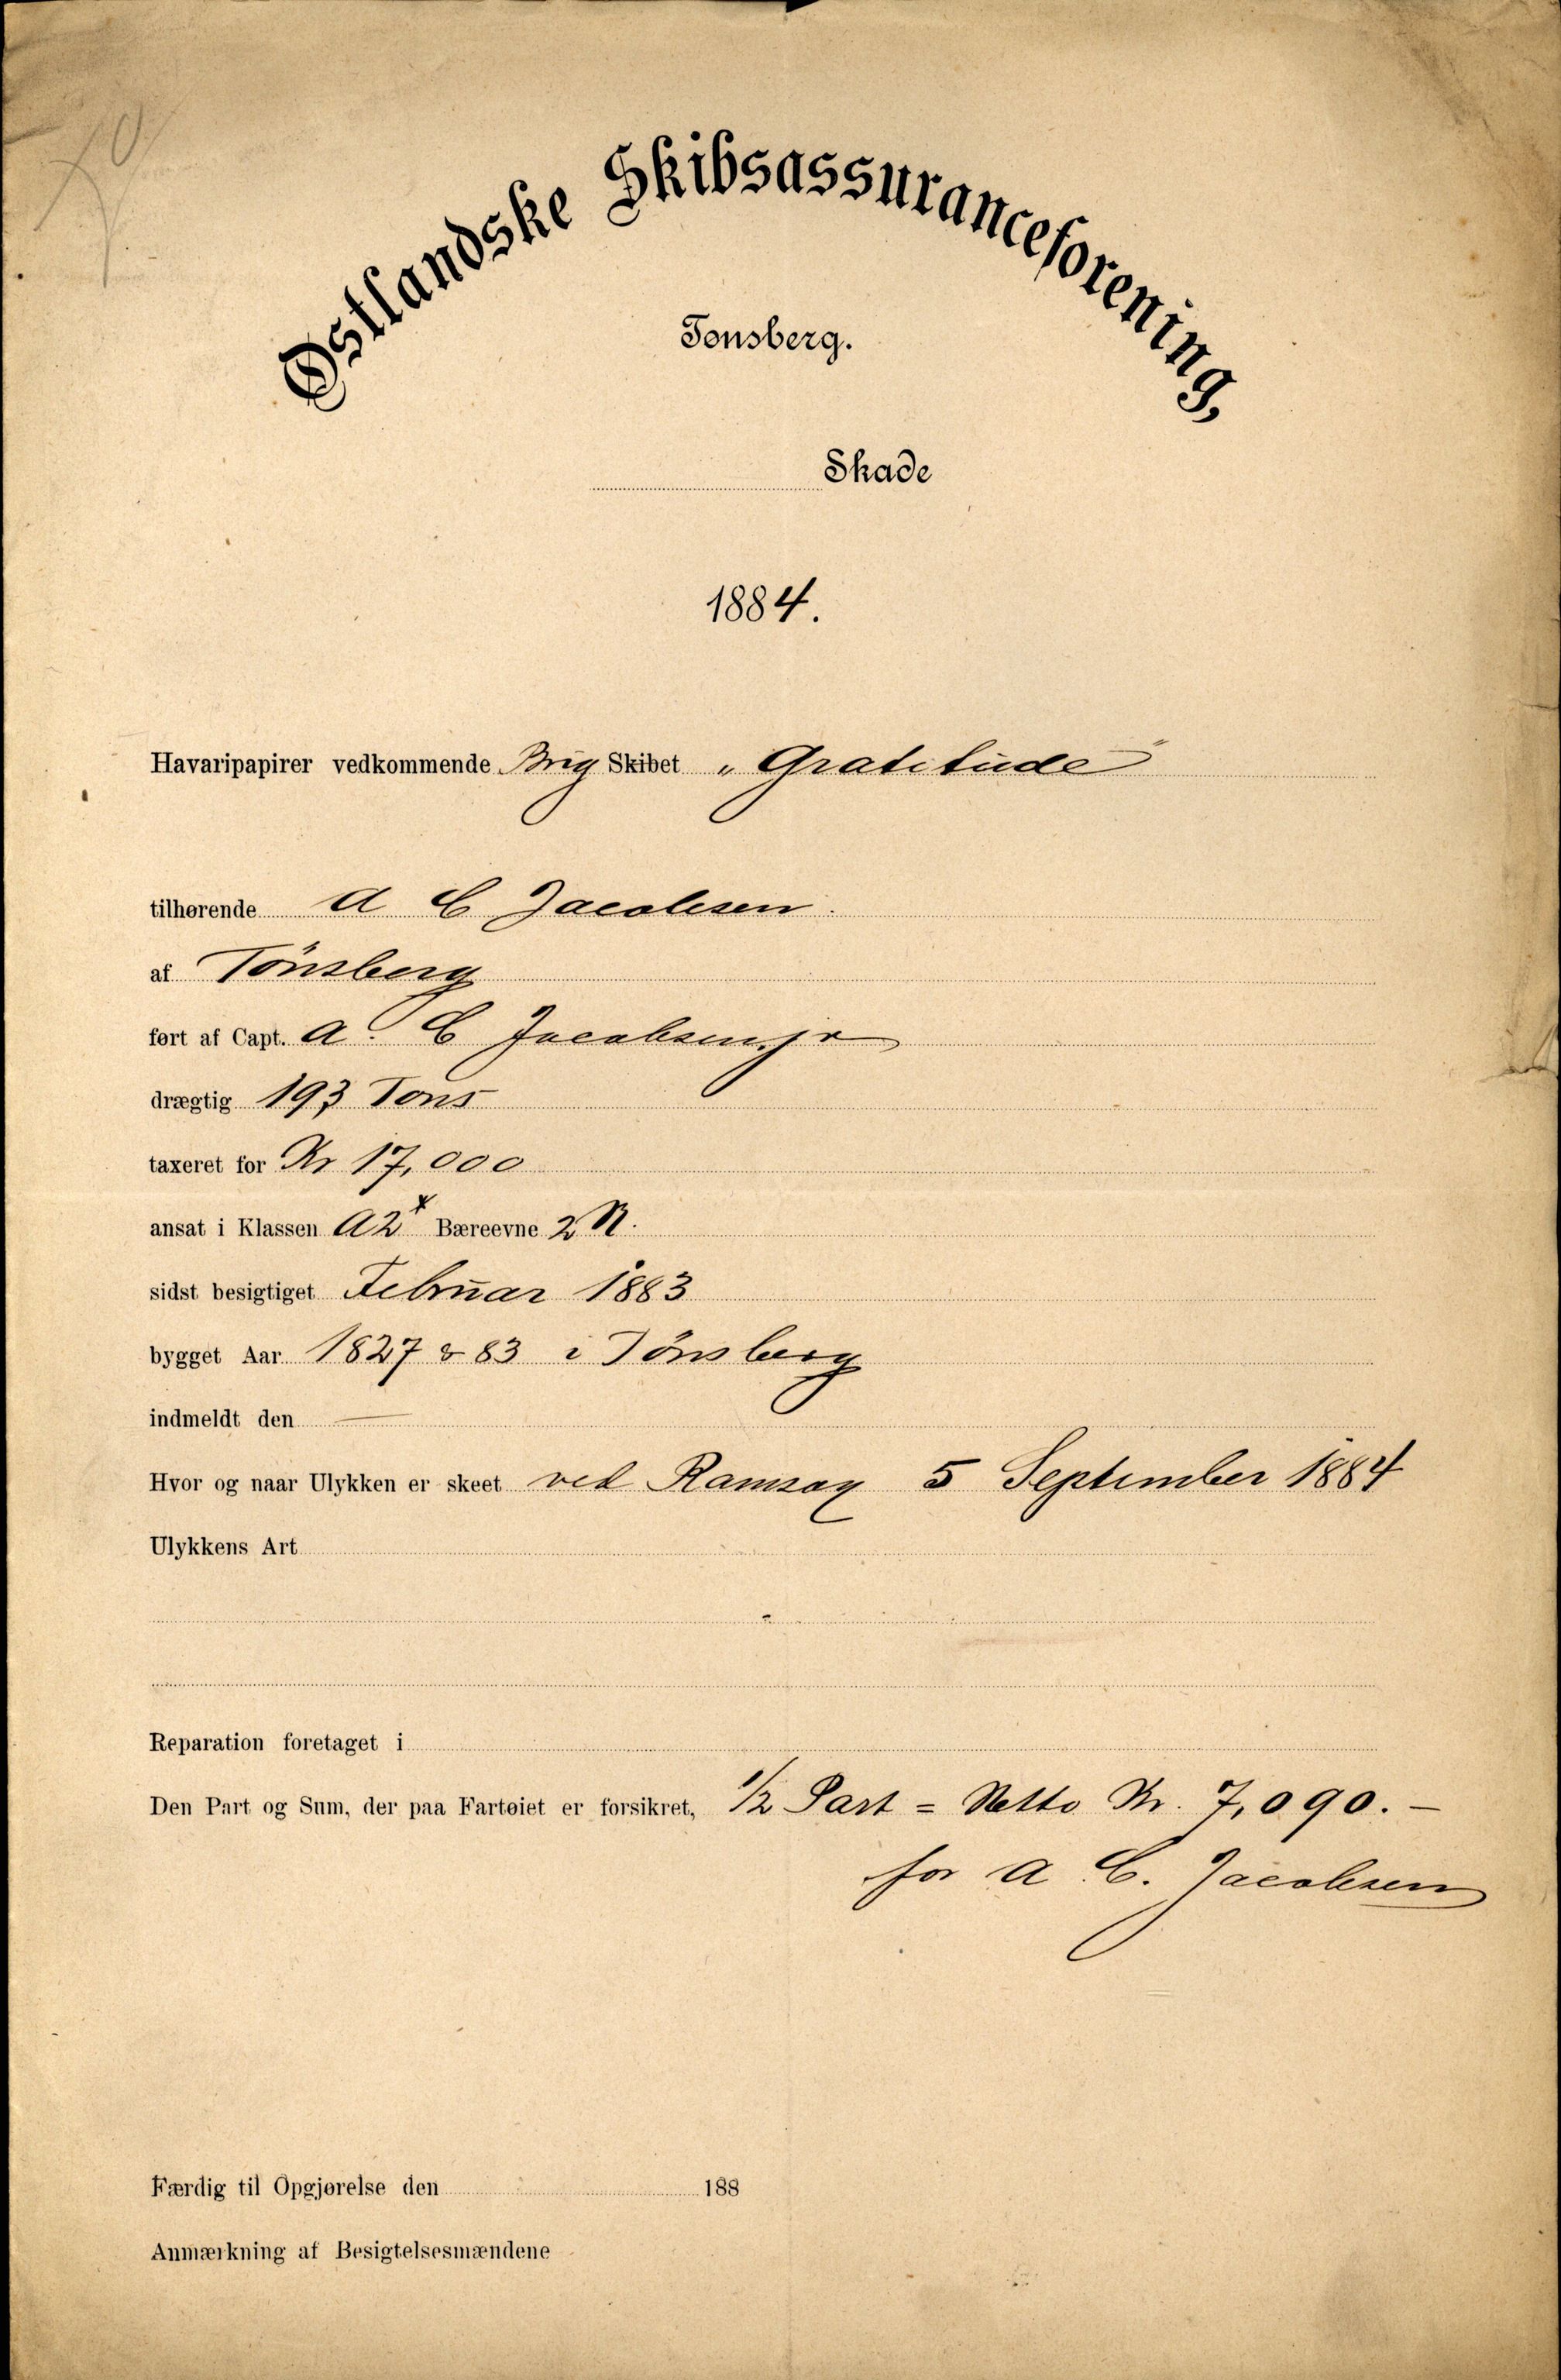 Østlandske Skibsassuranceforening,
Tønsberg.
Skade
1884.
Havaripapirer vedkommende Brig Skibet „Gratitude"
tilhørende A C Jacobsen.
af Tönsberg
ført af Capt. A. C Jacobsen jr
drægtig 193 Tons
taxeret for Kr 17,000
ansat i Klassen A2* Bæreevne 2 R.
sidst besigtiget Februar 1883
bygget Aar 1827 & 83 i Tönsberg
indmeldt den —
Hvor og naar Ulykken er skeet ved Ramsay 5 September 1884
Ulykkens Art
Reparation foretaget i
Den Part og Sum, der paa Fartøiet er forsikret, 1/2 Part = Netto Kr. 7,090. —
for A C. Jacobsen
Færdig til Opgjørelse den 188
Anmærkning af Besigtelsesmændene